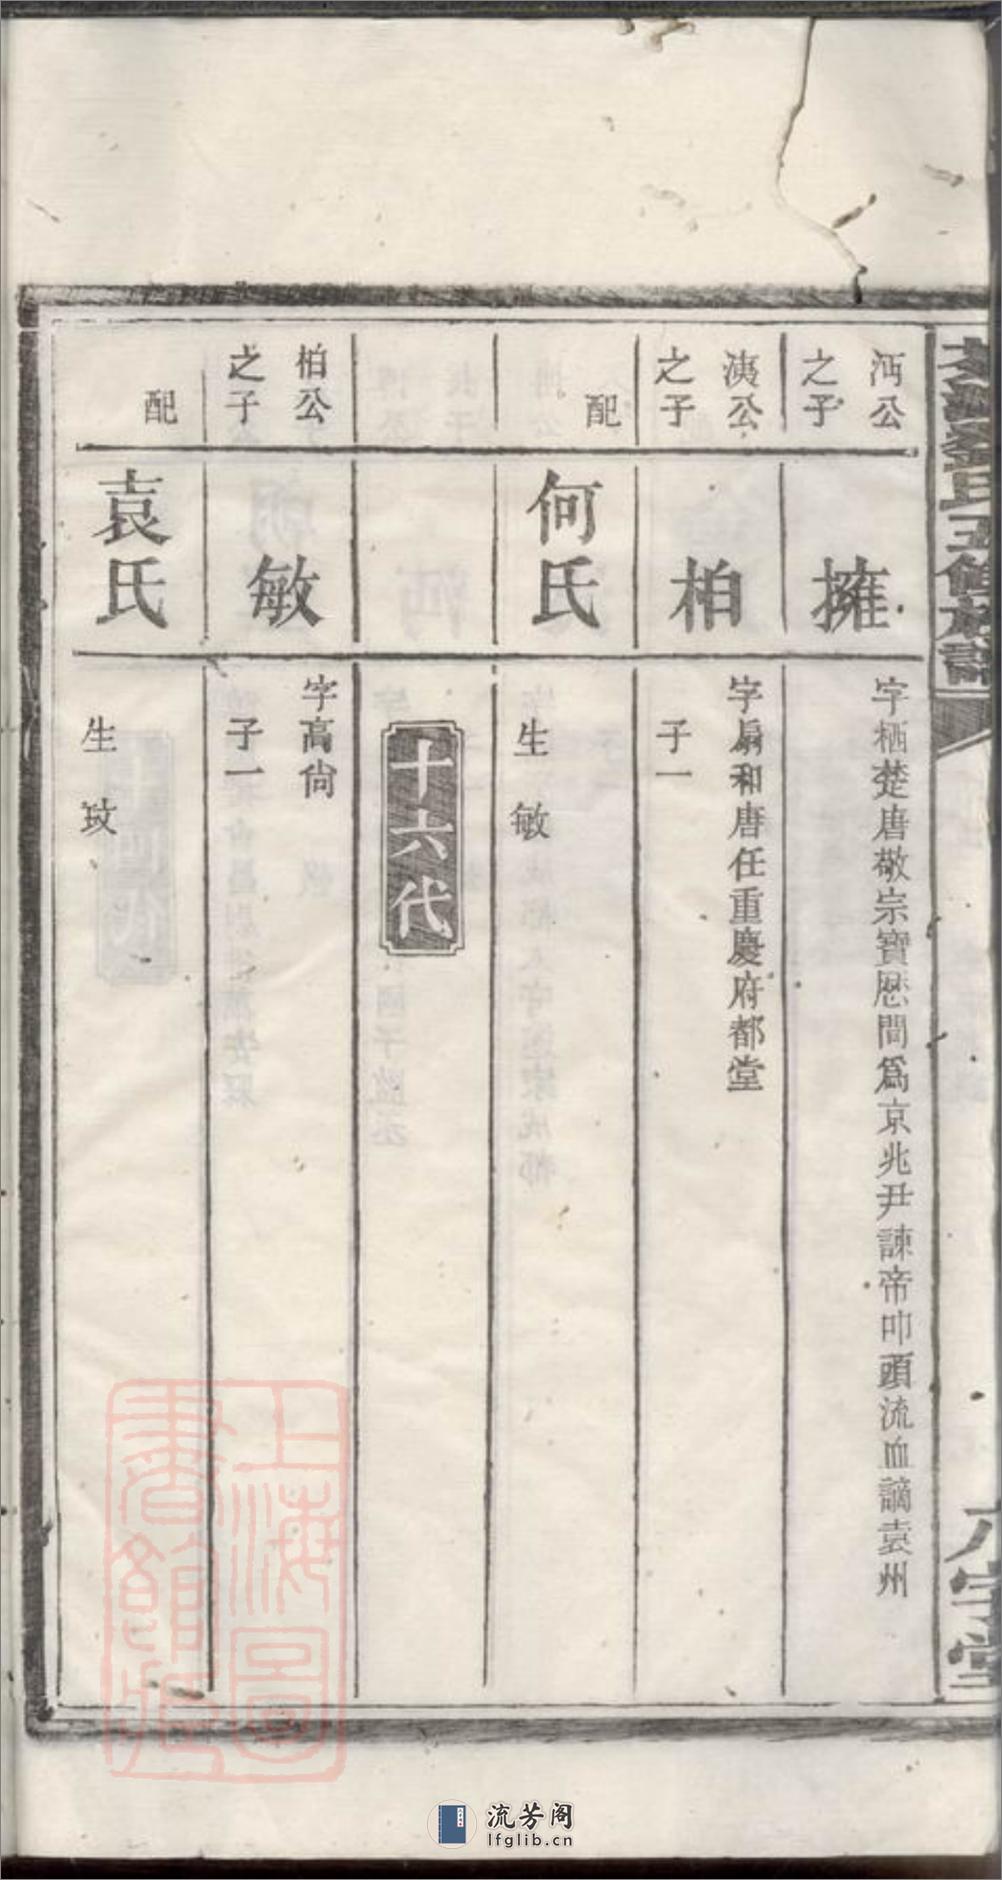 劉氏五修族譜
沔公
之子
擁
字栖楚唐敬宗寶曆間爲京兆尹諫帝叩頭流血謫袁州
洟公
之子
柏
字扇和唐任重慶府都堂
子一
配
何氏
生敏
十六代
柏公
之子
敏
字高尙
子一
配
袁氏
生玟
上海圖
書館藏
流芳阁
lfglib.cn